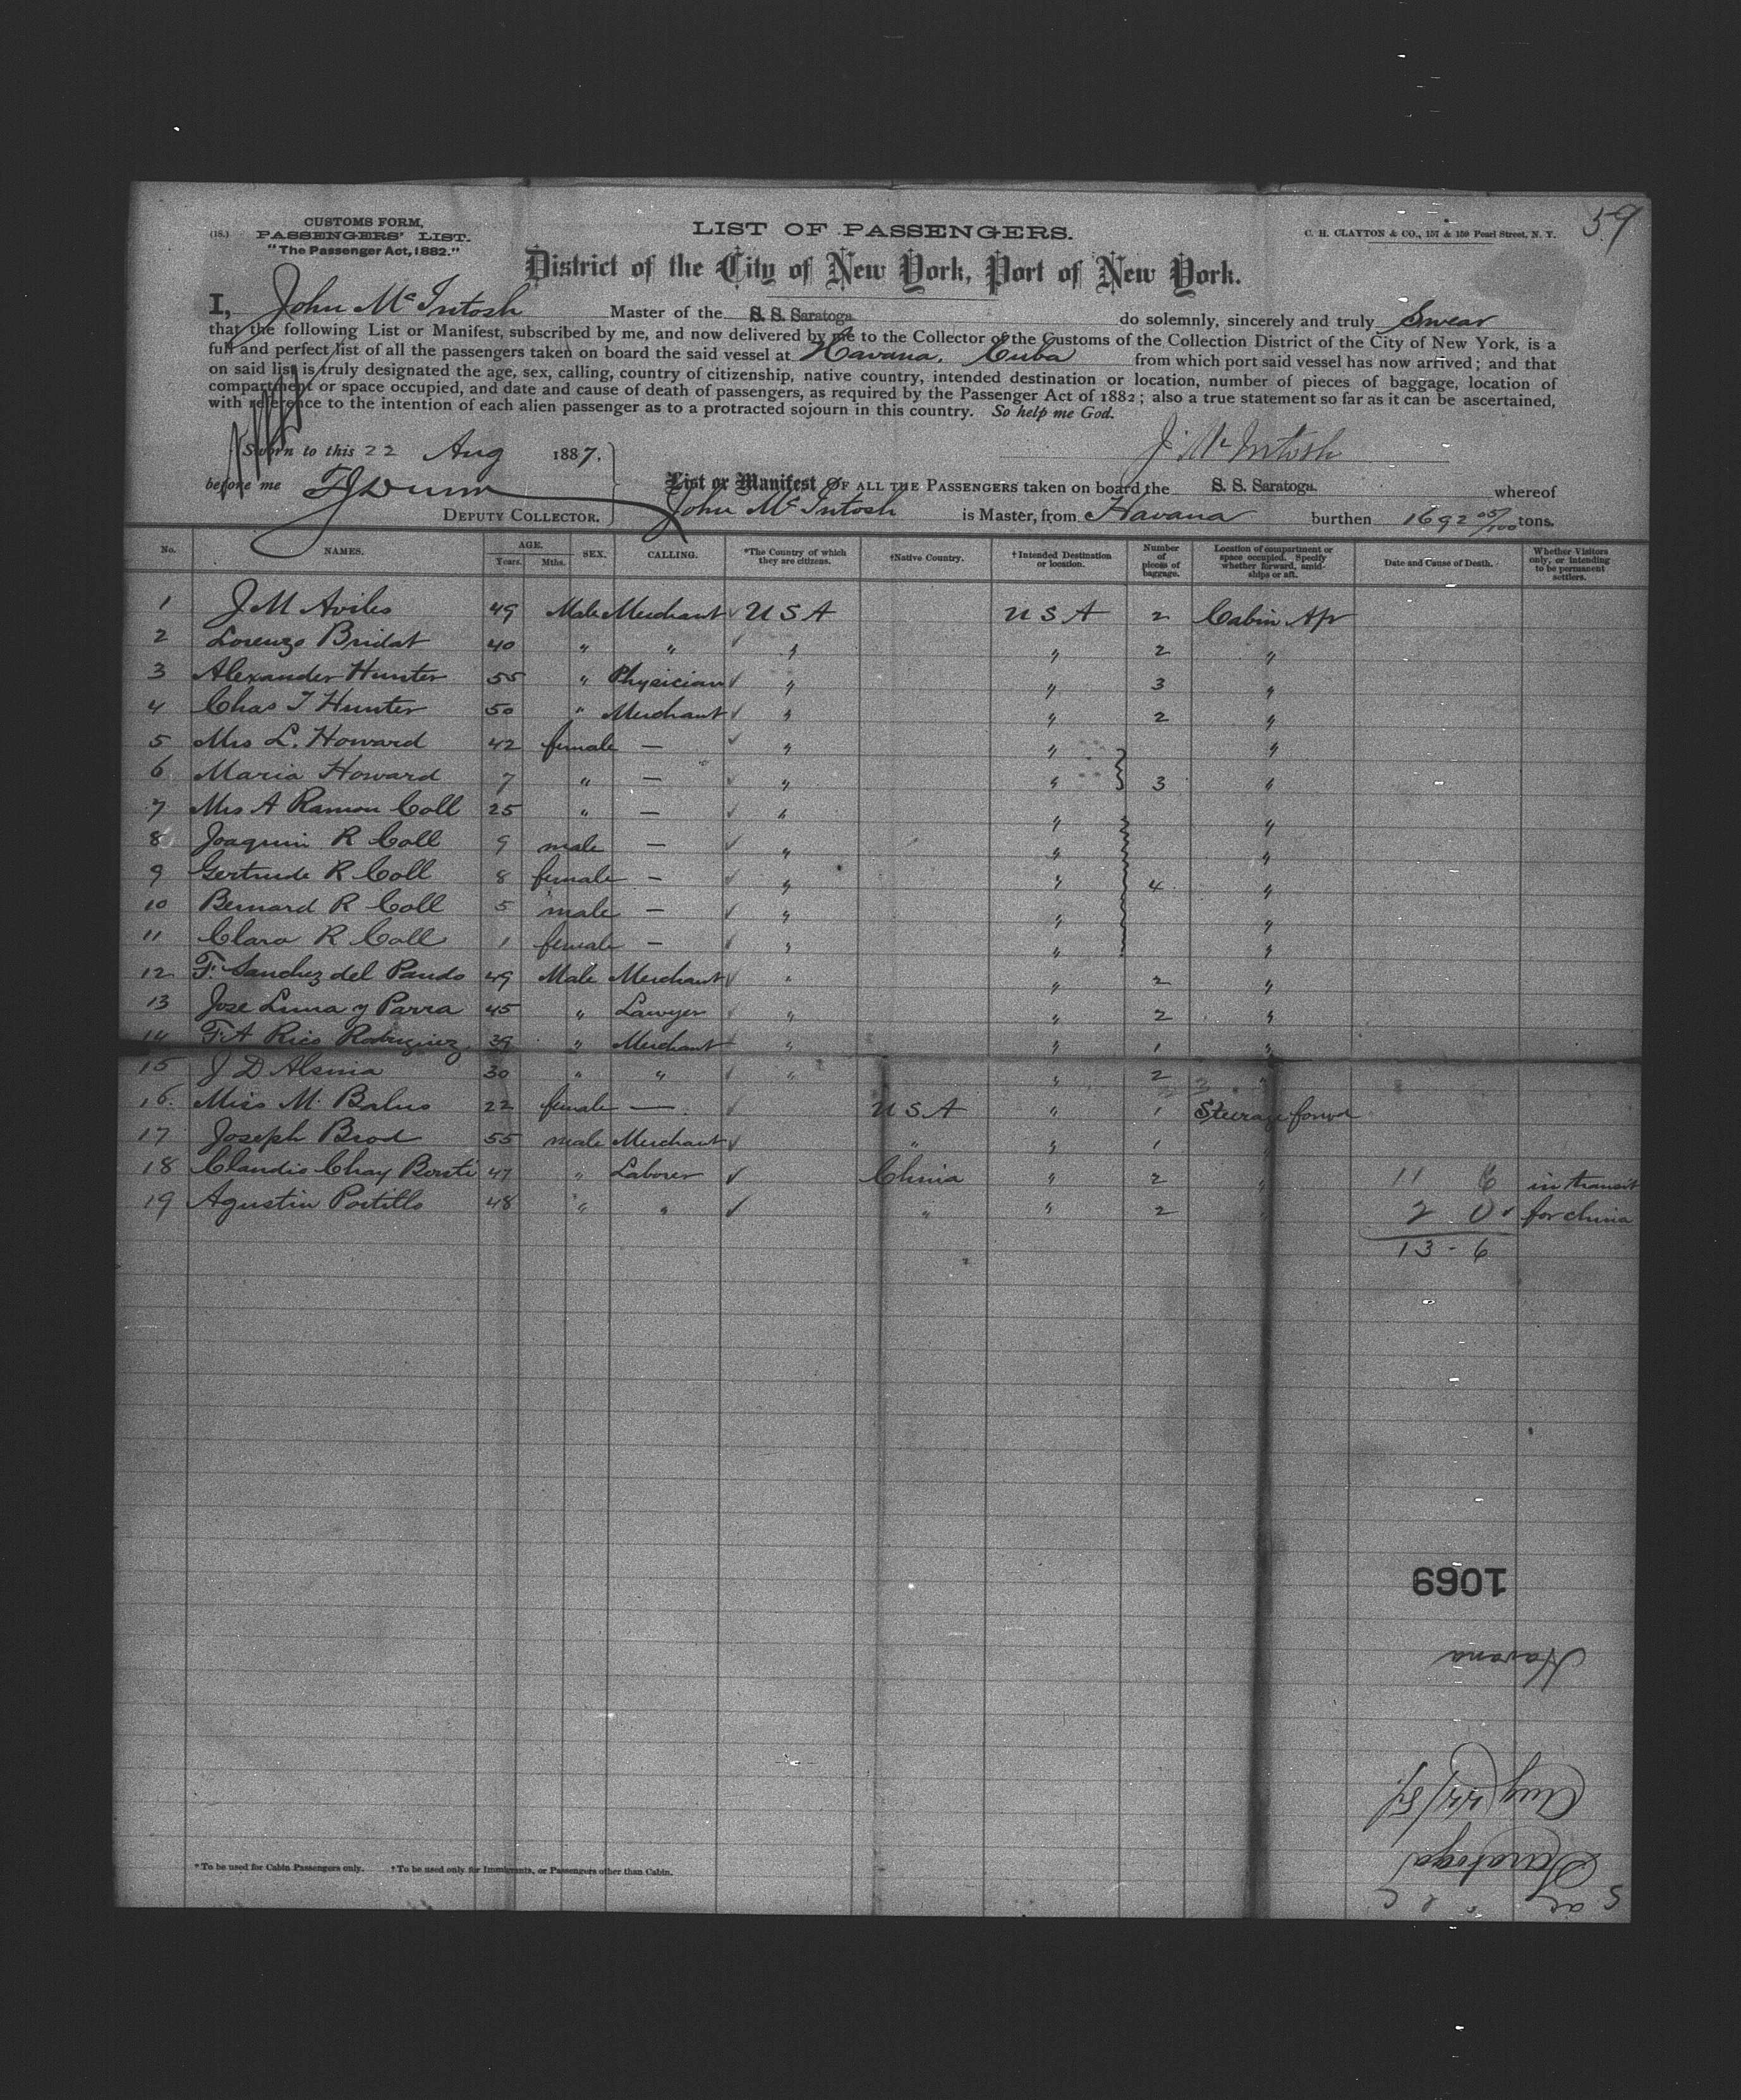 59
CUSTOMS FORM,
(18.) PASSENGERS' LIST.
"The Passenger Act, 1882."
LIST OF PASSENGERS.
C. H. CLAYTON & CO., 157 & 159 Pearl Street, N. Y.
District of the City of New York, Port of New York.
I, John McIntosh Master of the S. S. Saratoga do solemnly, sincerely and truly Swear
that the following List or Manifest, subscribed by me, and now delivered by me to the Collector of the Customs of the Collection District of the City of New York, is a
full and perfect list of all the passengers taken on board the said vessel at Havana, Cuba from which port said vessel has now arrived; and that
on said list is truly designated the age, sex, calling, country of citizenship, native country, intended destination or location, number of pieces of baggage, location of
compartment or space occupied, and date and cause of death of passengers, as required by the Passenger Act of 1882; also a true statement so far as it can be ascertained,
with reference to the intention of each alien passenger as to a protracted sojourn in this country. So help me God.
Sworn to this 22 Aug 1887.
J. McIntosh
before me
DEPUTY COLLECTOR.
List or Manifest OF ALL THE PASSENGERS taken on board the S. S. Saratoga. whereof
John McIntosh is Master, from Havana burthen 1692 05/100 tons.
No. NAMES. AGE. Years. Mths. SEX. CALLING. *The Country of which they are citizens. †Native Country. †Intended Destination or location. Number of pieces of baggage. Location of compartment or space occupied. Specify whether forward, amidships or aft. Date and Cause of Death. Whether Visitors only, or intending to be permanent settlers.
1 J M Aviles 49 Male Merchant ✓ U S A U S A 2 Cabin Aft
2 Lorenzo Bridat 40 " " ✓ " " 2 "
3 Alexander Hunter 55 " Physician ✓ " " 3 "
4 Chas T Hunter 50 " Merchant ✓ " " 2 "
5 Mrs L. Howard 42 female — ✓ " " "
6 Maria Howard 7 " — ✓ " " 3 "
7 Mrs A Ramon Coll 25 " — ✓ " " "
8 Joaquin R Coll 9 male — ✓ " " "
9 Gertrude R Coll 8 female — ✓ " " 4 "
10 Bernard R Coll 5 male — ✓ " " "
11 Clara R Coll 1 female — ✓ " " "
12 F. Sanchez del Pando 49 Male Merchant ✓ " " 2 "
13 Jose Luna y Parra 45 " Lawyer ✓ " " 2 "
14 F. A Rico Rodriguez 39 " Merchant " " 1 "
15 J D Alsina 30 " " ✓ " " 2 "
16 Miss M. Balus 22 female — ✓ U S A " 1 Steerage forwd
17 Joseph Brod 55 male Merchant ✓ " " 1 "
18 Claudio Chay 47 " Laborer ✓ China " 2 " 11 6 in transit
19 Agustin Portillo 48 " " ✓ " " 2 " 2 0 ✓ for china
13 - 6
1069
Havana
Aug 22/87
Saratoga
* To be used for Cabin Passengers only. † To be used only for Immigrants, or Passengers other than Cabin.